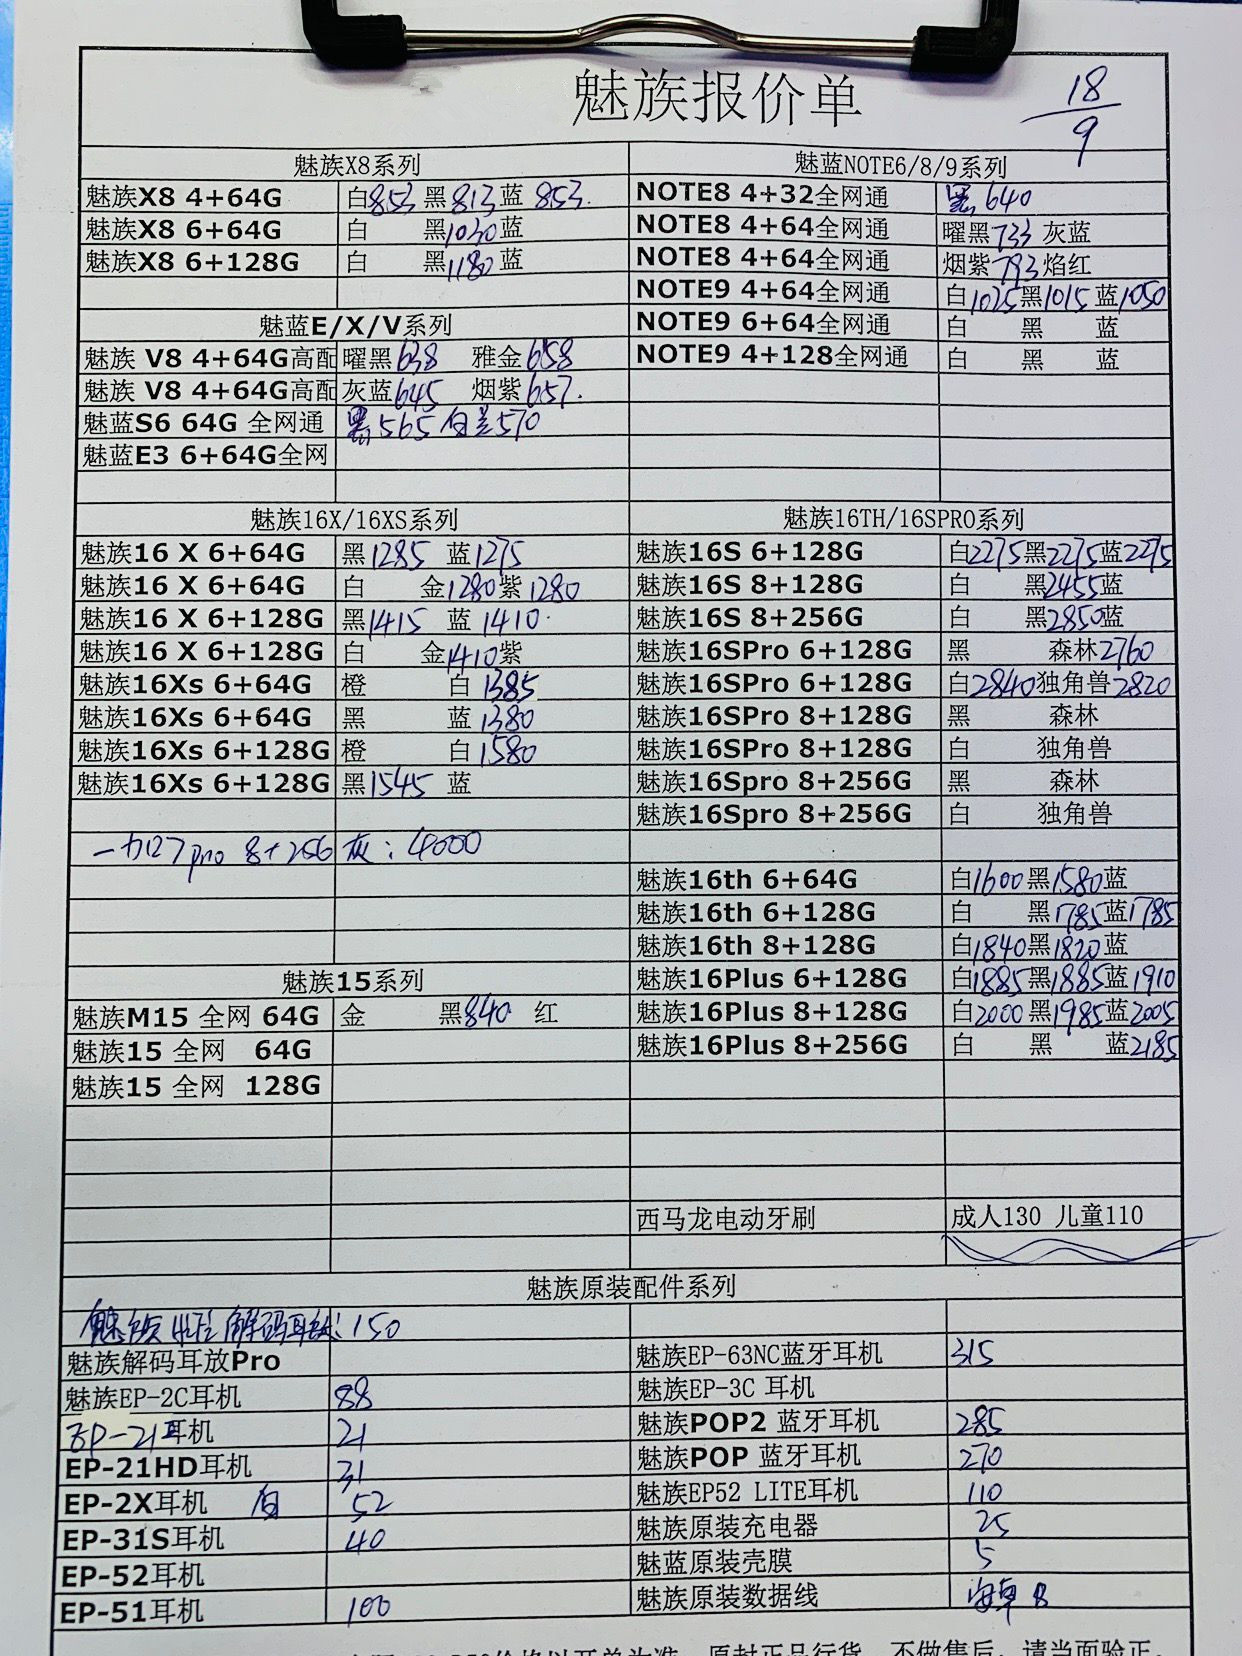 魅族报价单
18
9
魅族X8系列
魅族X8 4+64G 白853 黑813 蓝 853.
魅族X8 6+64G 白 黑1030 蓝
魅族X8 6+128G 白 黑1180 蓝
魅蓝E/X/V系列
魅族 V8 4+64G高配 曜黑638 雅金658
魅族 V8 4+64G高配 灰蓝645 烟紫657.
魅蓝S6 64G 全网通 黑565 白兰570
魅蓝E3 6+64G全网
魅蓝NOTE6/8/9系列
NOTE8 4+32全网通 黑 640
NOTE8 4+64全网通 曜黑733 灰蓝
NOTE8 4+64全网通 烟紫793 焰红
NOTE9 4+64全网通 白1025 黑1015 蓝1050
NOTE9 6+64全网通 白 黑 蓝
NOTE9 4+128全网通 白 黑 蓝
魅族16X/16XS系列
魅族16 X 6+64G 黑1285 蓝1275
魅族16 X 6+64G 白 金1280 紫1280
魅族16 X 6+128G 黑1415 蓝1410
魅族16 X 6+128G 白 金1410 紫
魅族16Xs 6+64G 橙 白1385
魅族16Xs 6+64G 黑 蓝1380
魅族16Xs 6+128G 橙 白1580
魅族16Xs 6+128G 黑1545 蓝
一加7pro 8+256 灰:4000
魅族15系列
魅族M15 全网 64G 金 黑840 红
魅族15 全网 64G
魅族15 全网 128G
魅族16TH/16SPRO系列
魅族16S 6+128G 白2275 黑2275 蓝2275
魅族16S 8+128G 白 黑2455 蓝
魅族16S 8+256G 白 黑2850 蓝
魅族16SPro 6+128G 黑 森林2760
魅族16SPro 6+128G 白2840 独角兽2820
魅族16SPro 8+128G 黑 森林
魅族16SPro 8+128G 白 独角兽
魅族16Spro 8+256G 黑 森林
魅族16Spro 8+256G 白 独角兽
魅族16th 6+64G 白1600 黑1580 蓝
魅族16th 6+128G 白 黑1785 蓝1785
魅族16th 8+128G 白1840 黑1820 蓝
魅族16Plus 6+128G 白1885 黑1885 蓝1910
魅族16Plus 8+128G 白2000 黑1985 蓝2005
魅族16Plus 8+256G 白 黑 蓝2185
西马龙电动牙刷 成人130 儿童110
魅族原装配件系列
魅族 hifi 解码耳放:150
魅族解码耳放Pro
魅族EP-2C耳机 88
EP-21耳机 21
EP-21HD耳机 31
EP-2X耳机 白 52
EP-31S耳机 40
EP-52耳机
EP-51耳机 100
魅族EP-63NC蓝牙耳机 315
魅族EP-3C 耳机
魅族POP2 蓝牙耳机 285
魅族POP 蓝牙耳机 270
魅族EP52 LITE耳机 110
魅族原装充电器 25
魅蓝原装壳膜 5
魅族原装数据线 安卓 8
价格以开单为准，原封正品行货，不做售后，请当面验正。